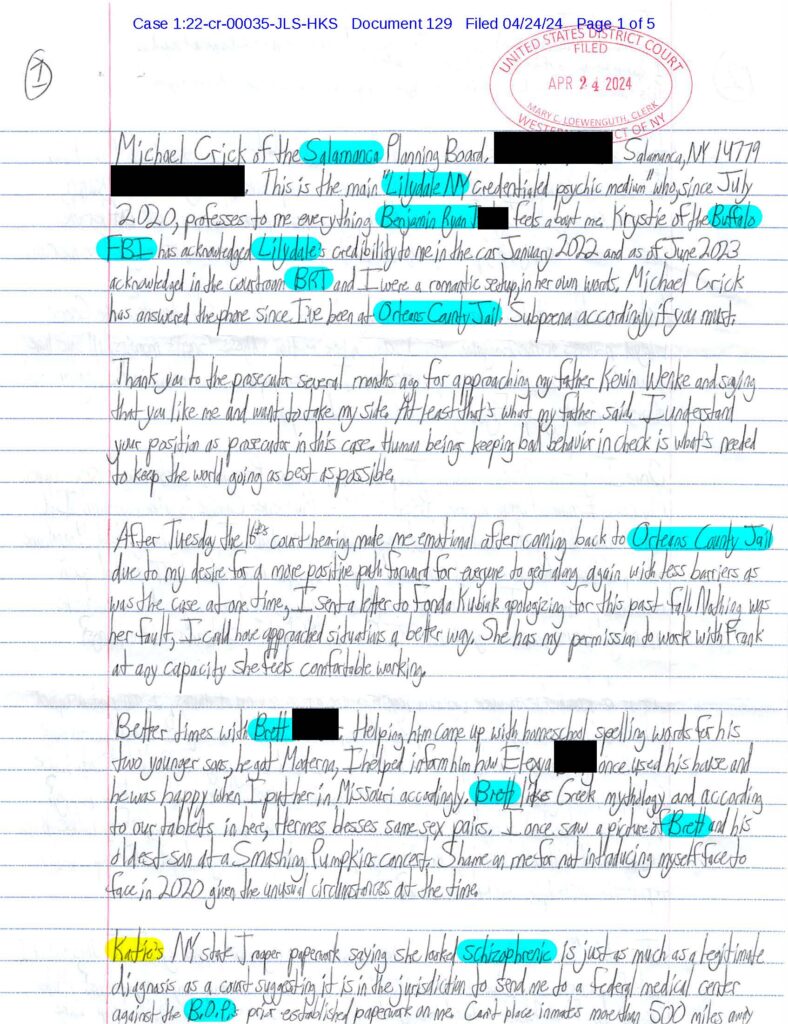 Case 1:22-cr-00035-JLS-HKS Document 129 Filed 04/24/24 Page 1 of 5
1
UNITED STATES DISTRICT COURT
FILED
APR 24 2024
MARY C. LOEWENGUTH, CLERK
WESTERN DISTRICT OF NY
Michael Crick of the Salamanca Planning Board, Salamanca, NY 14779
. This is the main "Lilydale NY credentialed psychic medium" who, since July
2020, professes to me everything Benjamin Ryan T feels about me. Krystie of the Buffalo
FBI has acknowledged Lilydale's credibility to me in the car January 2022 and as of June 2023
acknowledged in the courtroom BRT and I were a romantic setup, in her own words. Michael Crick
has answered the phone since I've been at Orleans County Jail. Subpoena accordingly if you must.
Thank you to the prosecutor several months ago for approaching my father Kevin Wenke and saying
that you like me and want to take my side. At least that's what my father said. I understand
your position as prosecutor in this case. Human beings keeping bad behavior in check is what's needed
to keep the world going as best as possible.
After Tuesday the 16th's court hearing made me emotional after coming back to Orleans County Jail
due to my desire for a more positive path forward for everyone to get along again with less barriers as
was the case at one time, I sent a letter to Fonda Kubiak apologizing for this past fall. Nothing was
her fault, I could have approached situations a better way. She has my permission to work with Frank
at any capacity she feels comfortable working.
Better times with Brett : Helping him come up with homeschool spelling words for his
two younger sons, he got Moderna, I helped inform him how Elexya once used his house and
he was happy when I put her in Missouri accordingly. Brett likes Greek mythology and according
to our tablets in here, Hermes blesses same sex pairs. I once saw a picture of Brett and his
oldest son at a Smashing Pumpkins concert. Shame on me for not introducing myself face to
face in 2020 given the unusual circumstances at the time.
Katie's NY state J paperwork saying she looked schizophrenic is just as much as a legitimate
diagnosis as a court suggesting it is in the jurisdiction to send me to a federal medical center
against the B.O.P.'s prior established paperwork on me. Can't place inmates more than 500 miles away